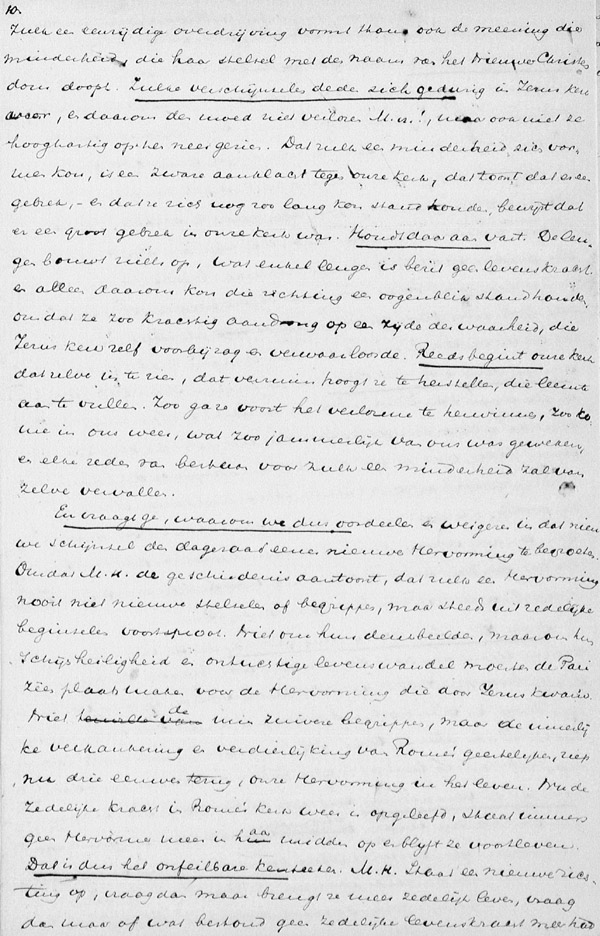 10.
Zulk een eenzijdige overdrijving vormt thans ook de meening die
minderheid, die haar stelsel met den naam van het Nieuwe Christen
dom doopt. Zulke verschijnselen deden zich gedurig in Jezus kerk
voor, en daarom den moed niet verloren M. H.!, maar ook niet ze
hooghartig op hen neergezien. Dat zulk een minderheid zich vor-
men kon, is een zware aanklacht tegen onze kerk, dat toont dat er een
gebrek, - en dat ze zich nog zoo lang kon staande houden, bewijst dat
er een groot gebrek in onze kerk was. Houdt daaraan vast. De leu-
gen bouwt niets op, wat enkel leugen is bezit geen levenskracht
en alleen daarom kon die richting een oogenblik standhouden
omdat ze zoo krachtig aandrong op een zijde der waarheid, die
Jezus kerk zelf voorbijzag en verwaarloosde. Reeds begint onze kerk
datzelve in te zien, dat verzuim poogt ze te herstellen, die leemte
aan te vullen. Zoo ga ze voort het verlorene te herwinnen, zoo ko
me in ons weer, wat zoo jammerlijk van ons was geweken,
en elke reden van bestaan voor zulk een minderheid zal van
zelve vervallen.
En vraagt ge, waarom we dus oordeelen en weigeren in dat nieu
we schijnsel den dageraad eener nieuwe Hervorming te begroeten.
Omdat M. H. de geschiedenis aantoont, dat zulk een Hervorming
nooit uit nieuwe stelsels of begrippen, maar steeds uit zedelijke
beginselen voortsproot. Niet om hun denkbeelden, maar om hun
schijnheiligheid en ontuchtige levenswandel moesten de Pari
zëen plaats maken voor de Hervorming die door Jezus kwam.
Niet de min zuivere begrippen, maar de innerlij
ke verkankering en verdierlijking van Rome's geestelijken, riep
nu drie eeuwen terug, onze Hervorming in het leven. Nu de
zedelijke kracht in Rome's kerk weer is opgeleefd, staat immers
geen Hervormer meer in haar midden op en blijft ze voortleven.
Dat is dus het onfeilbare kenteeken. M. H. Staat een nieuwe rich
ting op, vraag dan maar brengt ze meer zedelijk leven, vraag
dan maar of wat bestond geen zedelijke levenskracht meer had